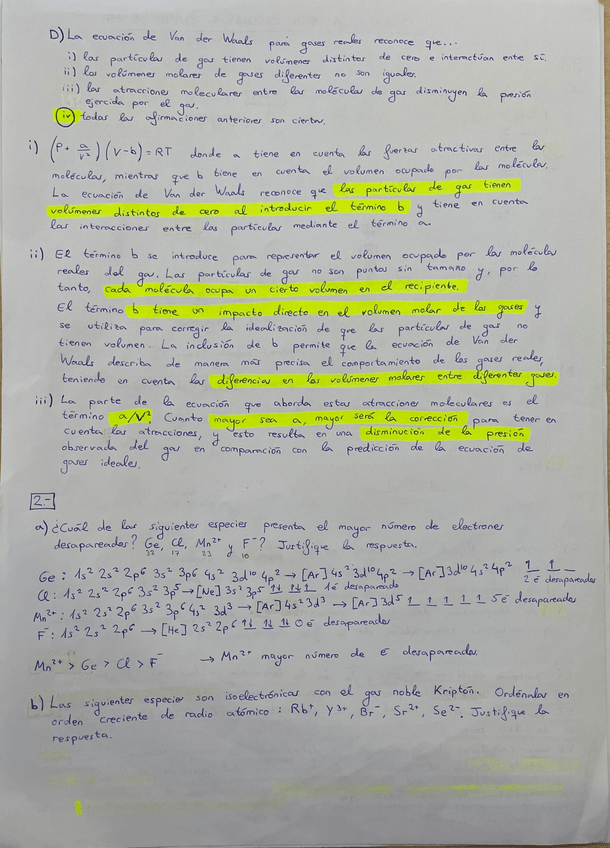 D) La ecuación de Van der Waals para gases reales reconoce que...
i) las partículas de gas tienen volúmenes distintos de cero e interactúan ente sí.
ii) los volúmenes molares de gases diferentes no son iguales.
iii) las atracciones moleculares entre las moléculas de gas disminuyen la presión
ejercida por el gas.
iv) todas las afirmaciones anteriores son ciertas.
i) (P + a/V²) (V-b) = RT donde a tiene en cuenta las fuerzas atractivas entre las
moléculas, mientras que b tiene en cuenta el volumen ocupado por las moléculas.
La ecuación de Van der Waals reconoce que las partículas de gas tienen
volúmenes distintos de cero al introducir el término b y tiene en cuenta
las interacciones entre las partículas mediante el término a.
ii) El término b se introduce para representar el volumen ocupado por las moléculas
reales del gas. Las partículas de gas no son puntos sin tamaño y, por lo
tanto, cada molécula ocupa un cierto volumen en el recipiente.
El término b tiene un impacto directo en el volumen molar de los gases y
se utiliza para corregir la idealización de que las partículas de gas no
tienen volumen. La inclusión de b permite que la ecuación de Van der
Waals describa de manera más precisa el comportamiento de los gases reales,
teniendo en cuenta las diferencias en los volúmenes molares entre diferentes gases.
iii) La parte de la ecuación que aborda estas atracciones moleculares es el
término a/V². Cuanto mayor sea a, mayor será la corrección para tener en
cuenta las atracciones, y esto resulta en una disminución de la presión
observada del gas en comparación con la predicción de la ecuación de
gases ideales.
2.-
a) ¿Cuál de las siguientes especies presenta el mayor número de electrones
desapareados? Ge, Cl, Mn²⁺ y F⁻? Justifique la respuesta.
32 17 23 10
Ge: 1s² 2s² 2p⁶ 3s² 3p⁶ 4s² 3d¹⁰ 4p² → [Ar] 4s² 3d¹⁰ 4p² → [Ar] 3d¹⁰ 4s² 4p² 1 1 _
2 é desapareados
Cl: 1s² 2s² 2p⁶ 3s² 3p⁵ → [Ne] 3s² 3p⁵ 1↓ 1↓ 1 1é desapareado
Mn²⁺: 1s² 2s² 2p⁶ 3s² 3p⁶ 4s² 3d³ → [Ar] 4s² 3d³ → [Ar] 3d⁵ 1 1 1 1 1 5é desapareados
F⁻: 1s² 2s² 2p⁶ → [He] 2s² 2p⁶ 1↓ 1↓ 1↓ 0 é desapareados
Mn²⁺ > Ge > Cl > F⁻ → Mn²⁺ mayor número de é desapareados.
b) Las siguientes especies son isoelectrónicas con el gas noble Kriptón. Ordénalas en
orden creciente de radio atómico: Rb⁺, Y³⁺, Br⁻, Sr²⁺, Se²⁻. Justifique la
respuesta.